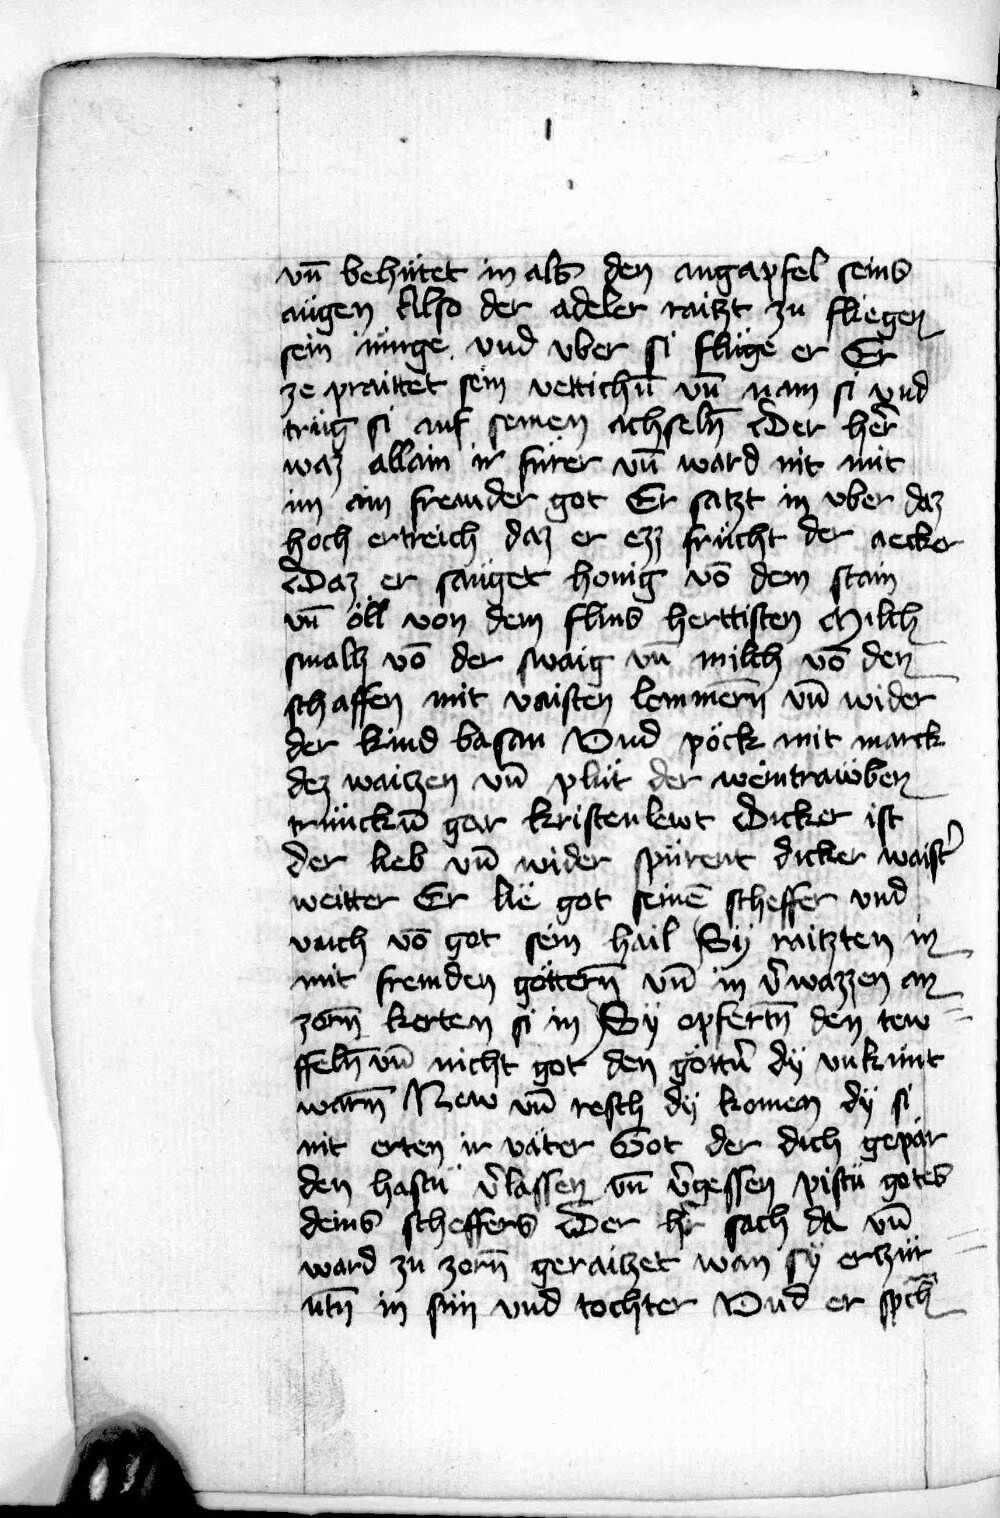 vn̄ behütet in als den augapfel seins
augen Also der adeler raitzt zu fliegen
sein iunge. vnd vber si flüge er Er
ze praittet sein vettichū vn̄ nam si vnd
trüg si auf seinen achseln̄ Der her̄
waz allain ir fürer vn̄ ward nit mit
im ain fremder got Er satzt in vber daz
hoch ertreich daz er ezz frücht der aecker
Daz er sauget honig vō dem stain
vn̄ öll von dem flins herttisten Milch
smaltz vō der swaig vn̄ milch vō den
schaffen mit vaisten lemmern̄ vn̄ wider
der kind basan Vnd pöck mit marck
dez waitzen vn̄ plüt der weintrawben
trünckū gar kristenlewt Dicker ist
der lieb vn̄ wider spürent dicker waist'
weitter Er lië got seinē scheffer vnd
vaich vō got sein hail Sÿ raitzten in
mit fremden göttern̄ vn̄ in v'wazzen an
zorn̄ kerten si in Sÿ opfertn̄ den tew
ffeln̄ vn̄ nicht got den göttn̄ dÿ vnkünt
warn̄ New vn̄ resch dÿ komen dÿ si
nit erten ir väter Got der dich gepar
den hastu v'lassen vn̄ v'gessen pistu gotes
deins scheffers Der h'r sach da vn̄
ward zu zorn̄ geraitzet wan sÿ erzür
ntn̄ in sün vnd tochter Vnd er sp̄ch